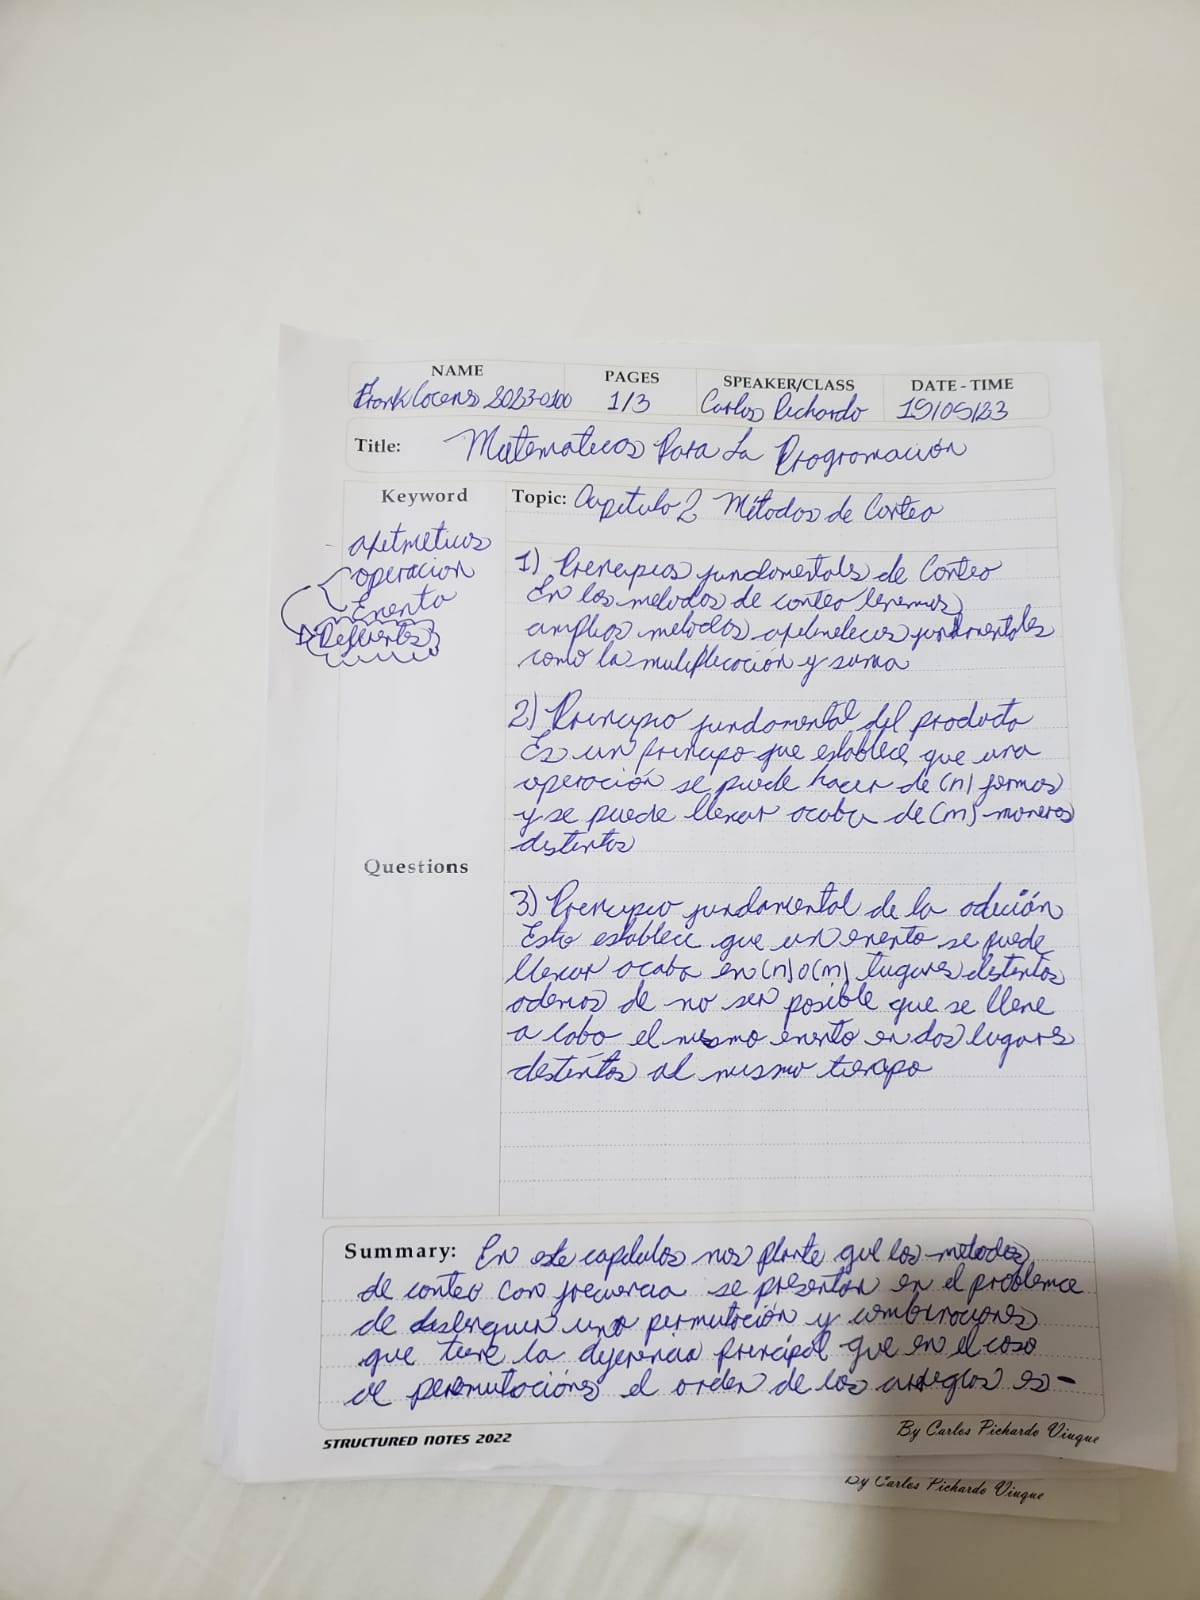 NAME PAGES SPEAKER/CLASS DATE - TIME
2023-0100 1/3 Carlos Pichardo 19/09/23
Title: Matematicas Para La Programación
Keyword
operacion
Evento
Questions
Topic: Capitulo 2 Métodos de Conteo
1) Principios fundamentales de Conteo
En los metodos de conteo tenemos
amplios metodos fundamentales
como la multiplicación y suma
2) Principio fundamental del producto
Es un principo que establece que una
operación se puede hacer de (n) formas
y se puede llevar acaba de (m) maneras
distintas
3) Principio fundamental de la adición
Esto establece que un evento se puede
llevar acaba en (n) o (m) lugares distintos
ademas de no ser posible que se lleve
a cabo el mismo evento en dos lugares
distintos al mismo tiempo
Summary: En este capitulos nos plante que los metodos
de conteo con frecuencia se presentan en el problema
de distinguir una permutación y combinaciones
que tiene la diferencia principal que en el caso
de permutaciónes el orden de los arreglos es-
STRUCTURED NOTES 2022
By Carlos Pichardo Viuque
By Carlos Pichardo Viuque